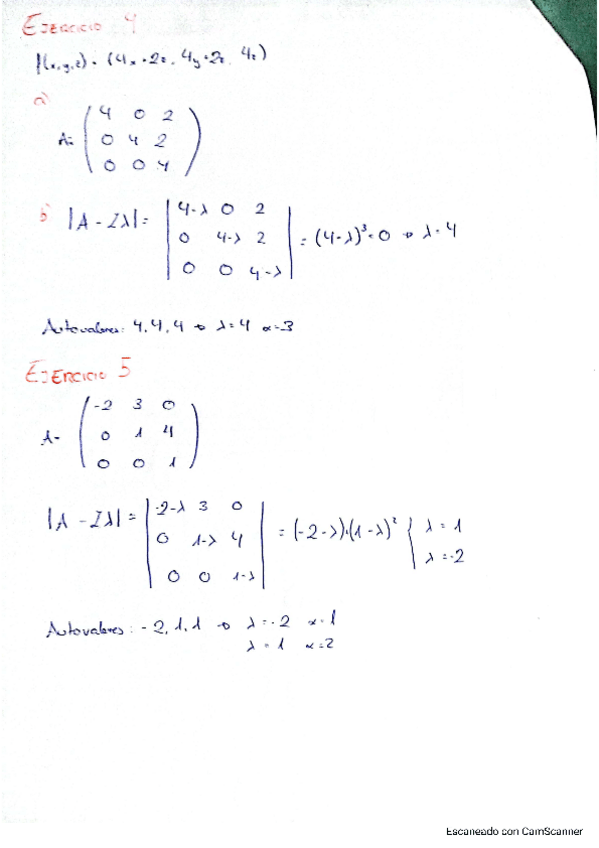 EJERCICIO 4
f(x,y,z) = (4x+2z, 4y+2z, 4z)
a)
A= ( 4 0 2
0 4 2
0 0 4 )
b) |A - Iλ| = | 4-λ 0 2
0 4-λ 2
0 0 4-λ | = (4-λ)³ = 0 → λ=4
Autovalores: 4, 4, 4 → λ=4 α=3
EJERCICIO 5
A= ( -2 3 0
0 1 4
0 0 1 )
|A - Iλ| = | -2-λ 3 0
0 1-λ 4
0 0 1-λ | = (-2-λ)·(1-λ)² { λ=1
λ=-2
Autovalores: -2, 1, 1 → λ=-2 α=1
λ=1 α=2
Escaneado con CamScanner